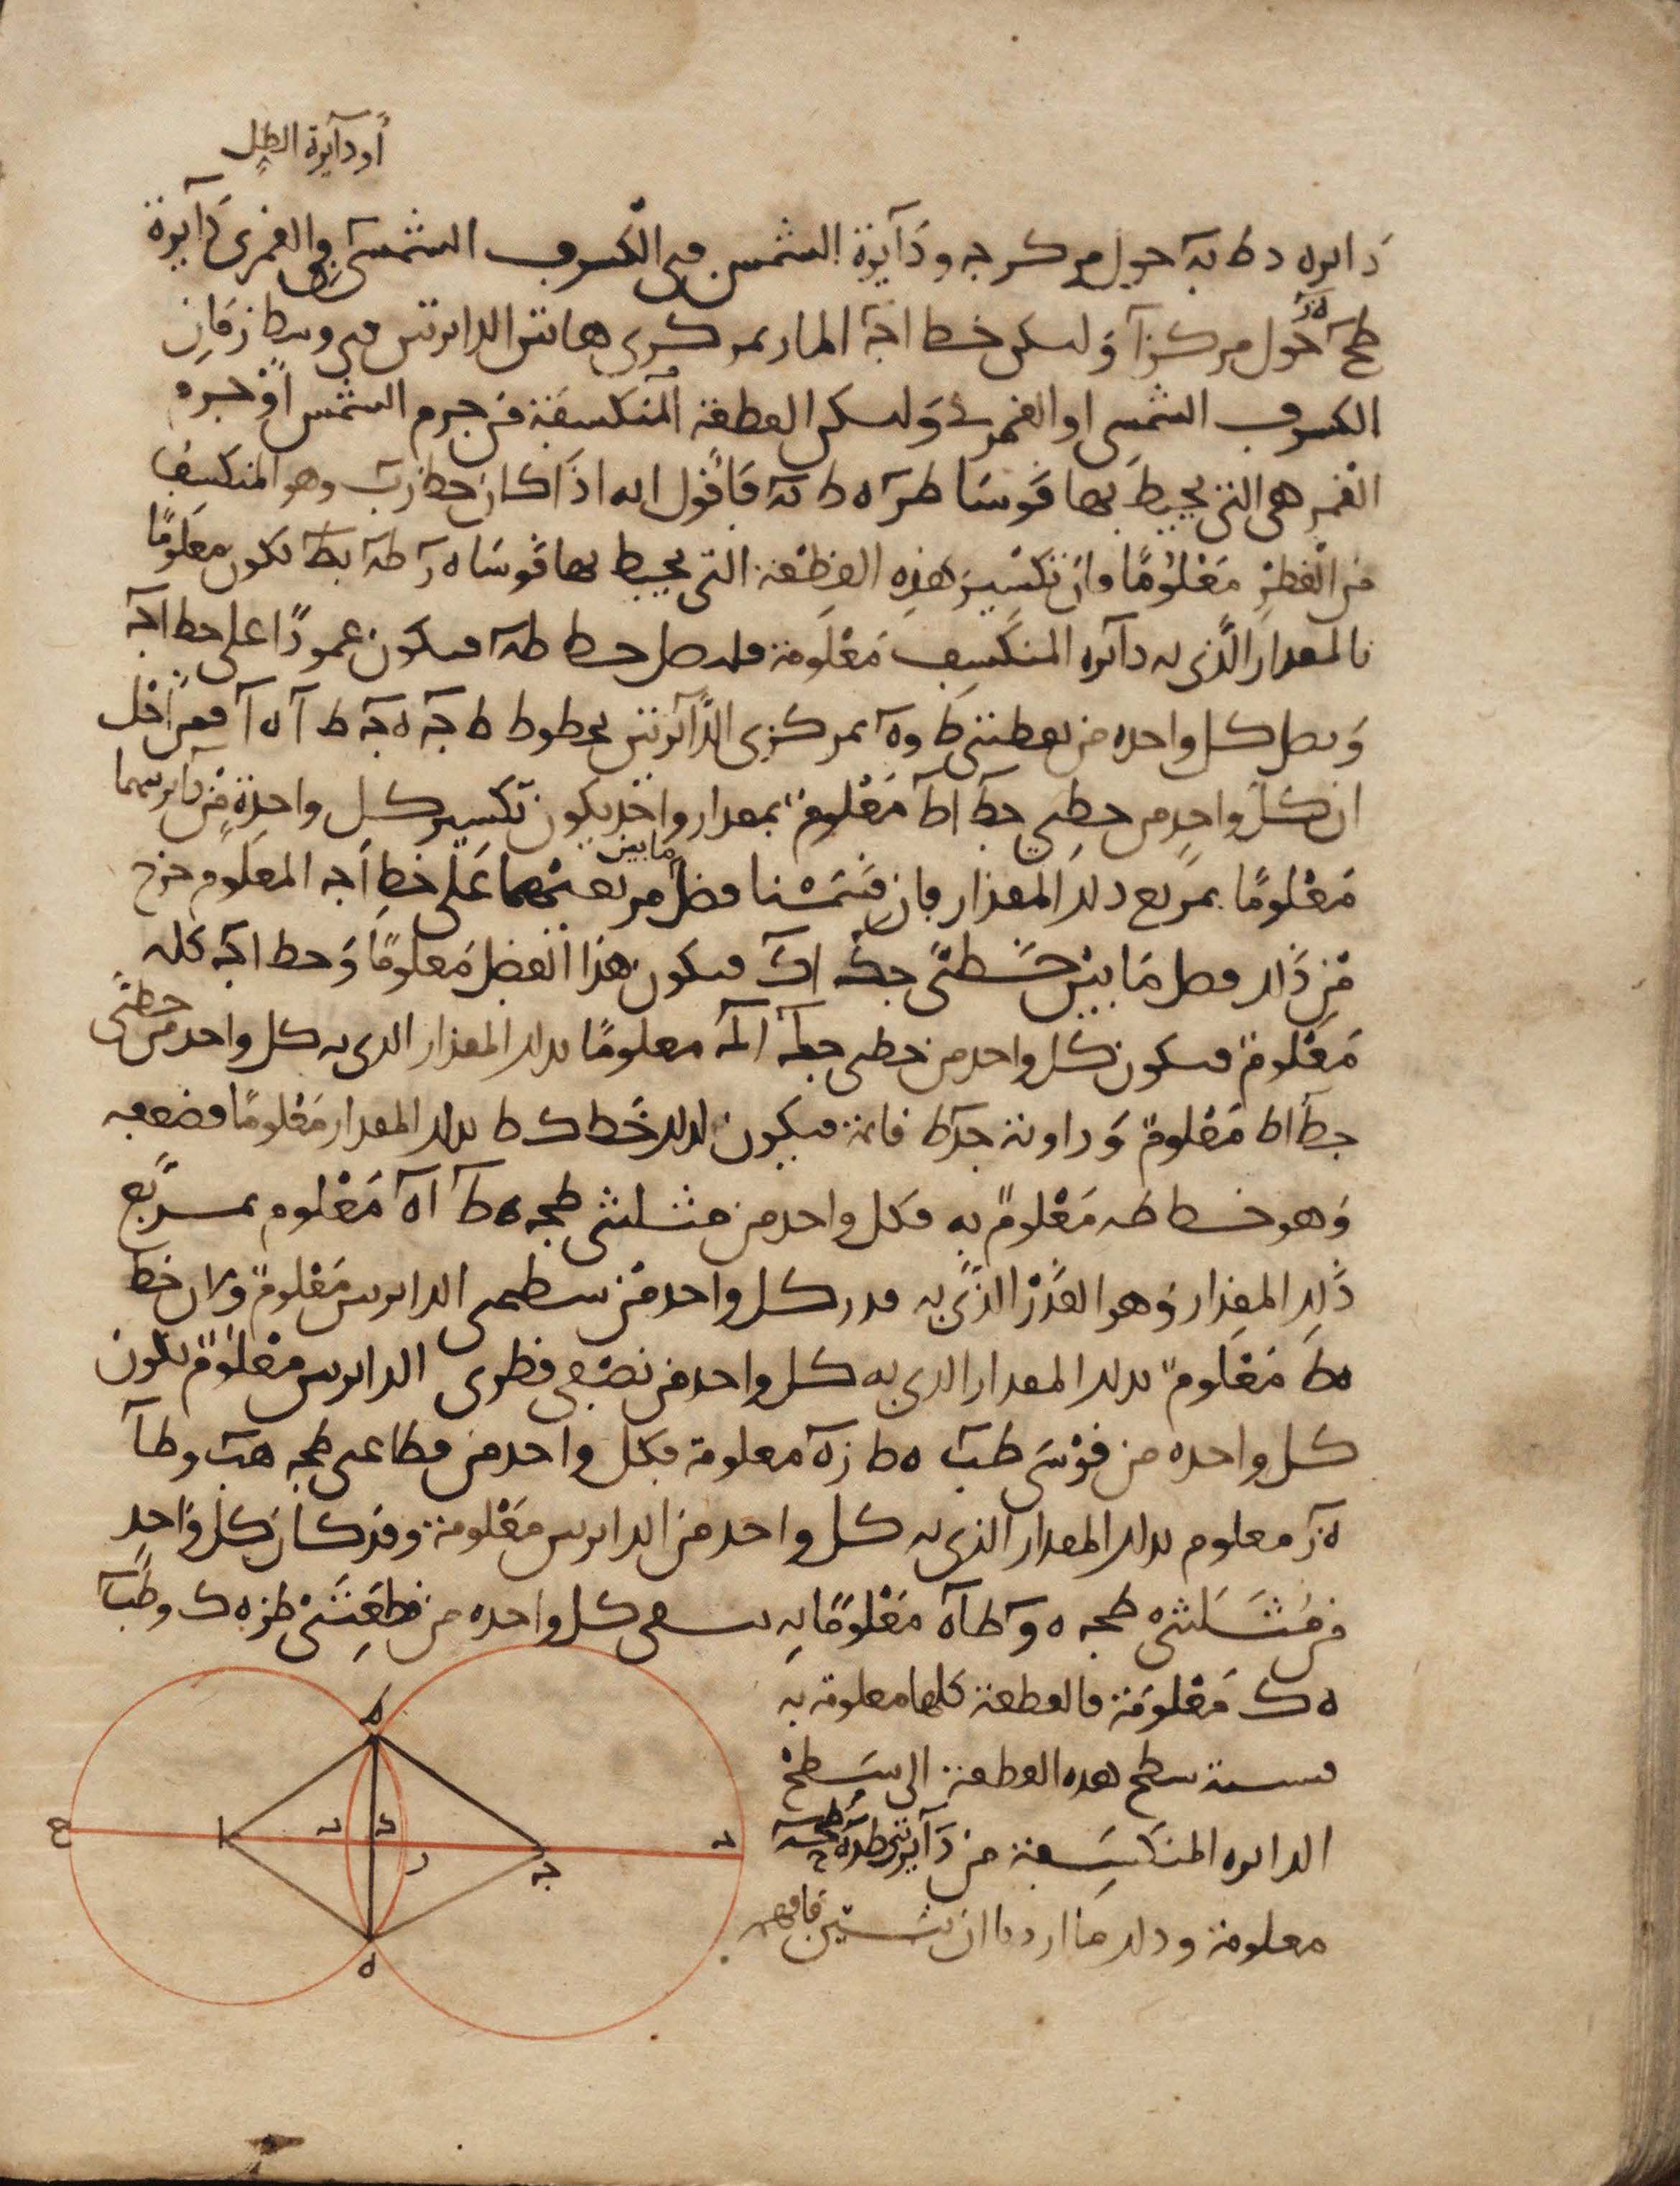 أو دآيرة الظل
دايره د ط به حول مركز جه ودآيرة الشمس في الكسوف الشمسي وفي القمري دآيرة
طح ه ز حول مركز آ وليكن خط اجه المار بمركزي هاتين الدايرتين في وسط زمان
الكسوف الشمسي او القمري وليكن القطعة المنكسفة من جرم الشمس أو جرم
القمر هي التي يحيط بها قوسا ه ط به فأقول انه اذا كان خط زب وهو المنكسف
من القطر معلومًا وان تكسير هذه القطعة التي يحيط بها قوسا ه ز ط ه ب ط يكون معلومًا
بالمقدار الذي به دآيره المنكسف معلومة فلنصل خط طه فيكون عمودًا على خط اجه
ونصل كل واحده من نقطتي ط وه بمركزي الدآيرتين بخطوط ط جه ه جه ط آ ه آ فمن أجل
ان كل واحد من خطي جط اط معلوم بمقدار واحد يكون تكسير كل واحدة من دآيرتيهما
معلومًا بمربع ذلك المقدار فان قسمنا فضل ما بين مربعيهما على خط اجه المعلوم خرج
من ذلك فضل ما بين خطي جك اك فيكون هذا الفضل معلومًا وخط اجه كله
معلوم فيكون كل واحد من خطي جك اك معلومًا بذلك المقدار الذي به كل واحد من خطي
جط اط معلوم وزاوية جك ط قائمة فيكون لذلك خط ك ط بذلك المقدار معلومًا فضعفه
وهو خط طه معلوم به فكل واحد من مثلثي طجه ه ط اه معلوم بمربع
ذلك المقدار وهو القدر الذي به قدر كل واحد من سطحي الدايرتين معلوم ولان خط
ه ط معلوم بذلك المقدار الذي به كل واحد من نصفي قطري الدايرتين معلوم تكون
كل واحده من قوسي ط ب ه ط زه معلومة فكل واحد من قطاعي طجه هب وطا
ه ز معلوم بذلك المقدار الذي به كل واحد من الدايرتين معلومة وقد كان كل واحد
من مثلثي طجه ه و ط اه معلومًا به تبقى كل واحده من قطعتي ط ز ه ك و ط ب
ه ك معلومة فالقطعة كلها معلومة به
فنسبة سطح هذه القطعة الى سطح
الدايره المنكسفة من دآيرتي
معلومة وذلك ما اردنا ان نبين فافهم
ط
ح ا ب ك ز جه د
ه